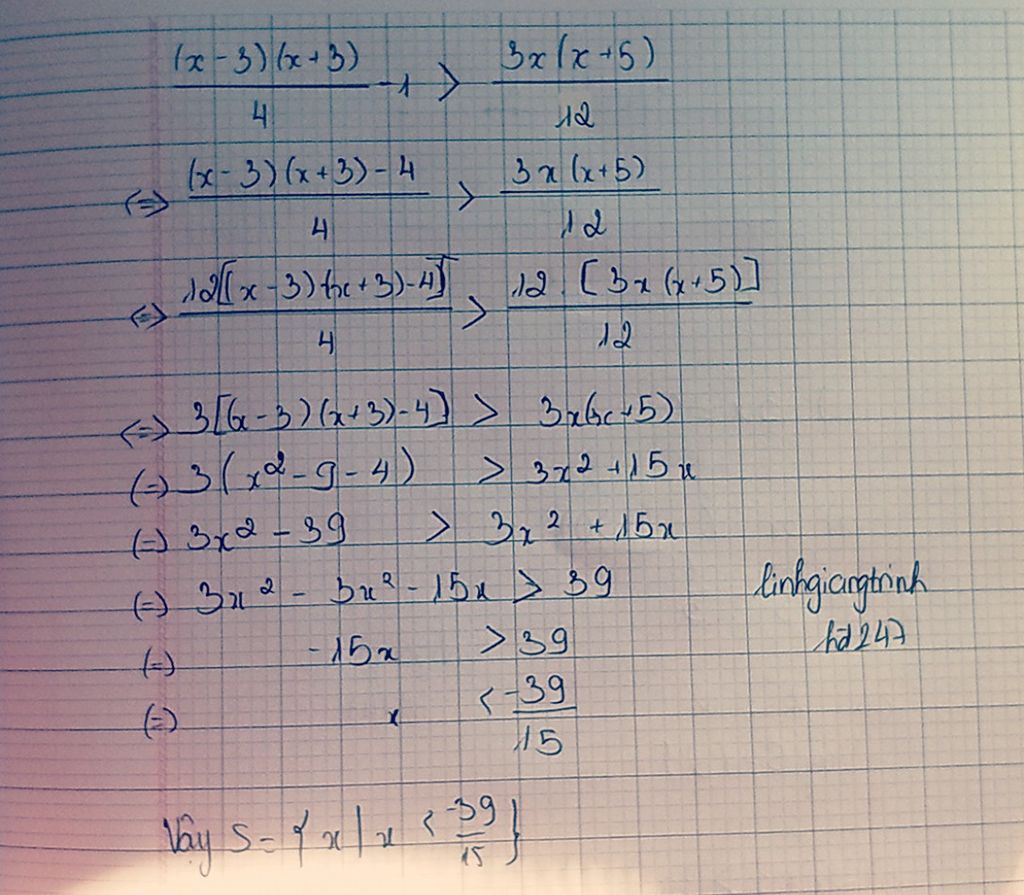 (x-3)(x+3)/4 -1 > 3x(x+5)/12
<=> (x-3)(x+3)-4/4 > 3x(x+5)/12
<=> 12[(x-3)(x+3)-4]/4 > 12.[3x(x+5)]/12
<=> 3[(x-3)(x+3)-4] > 3x(x+5)
(=) 3(x²-9-4) > 3x²+15x
(=) 3x²-39 > 3x²+15x
(=) 3x²-3x²-15x > 39
linhgiangtrinh
hd247
(=) -15x > 39
(=) x < -39/15
Vậy S={x|x < -39/15}